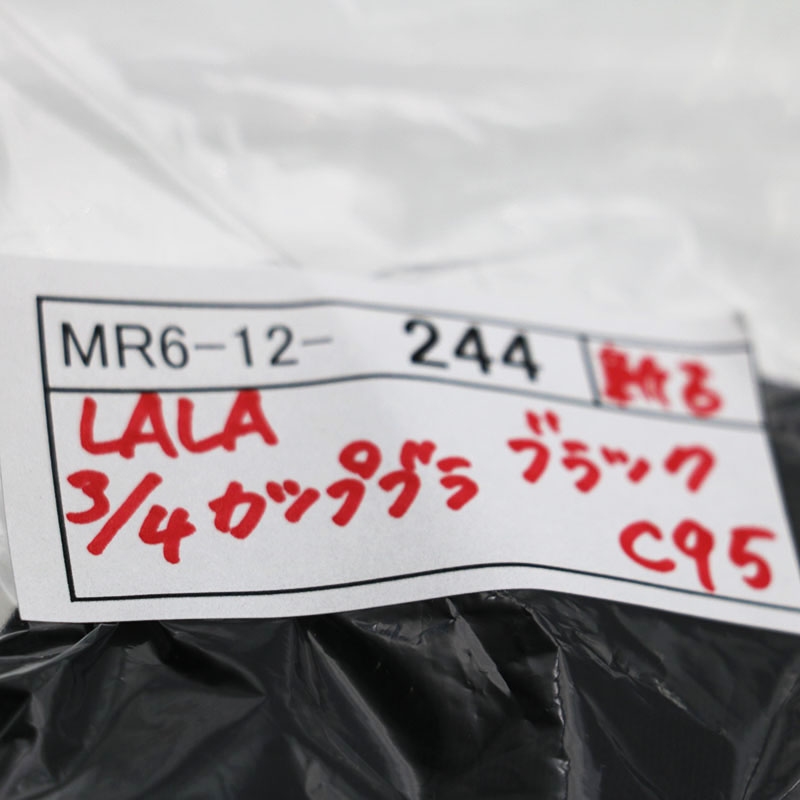 MR6-12- 244
LALA
3/4 カップブラ ブラック
C95